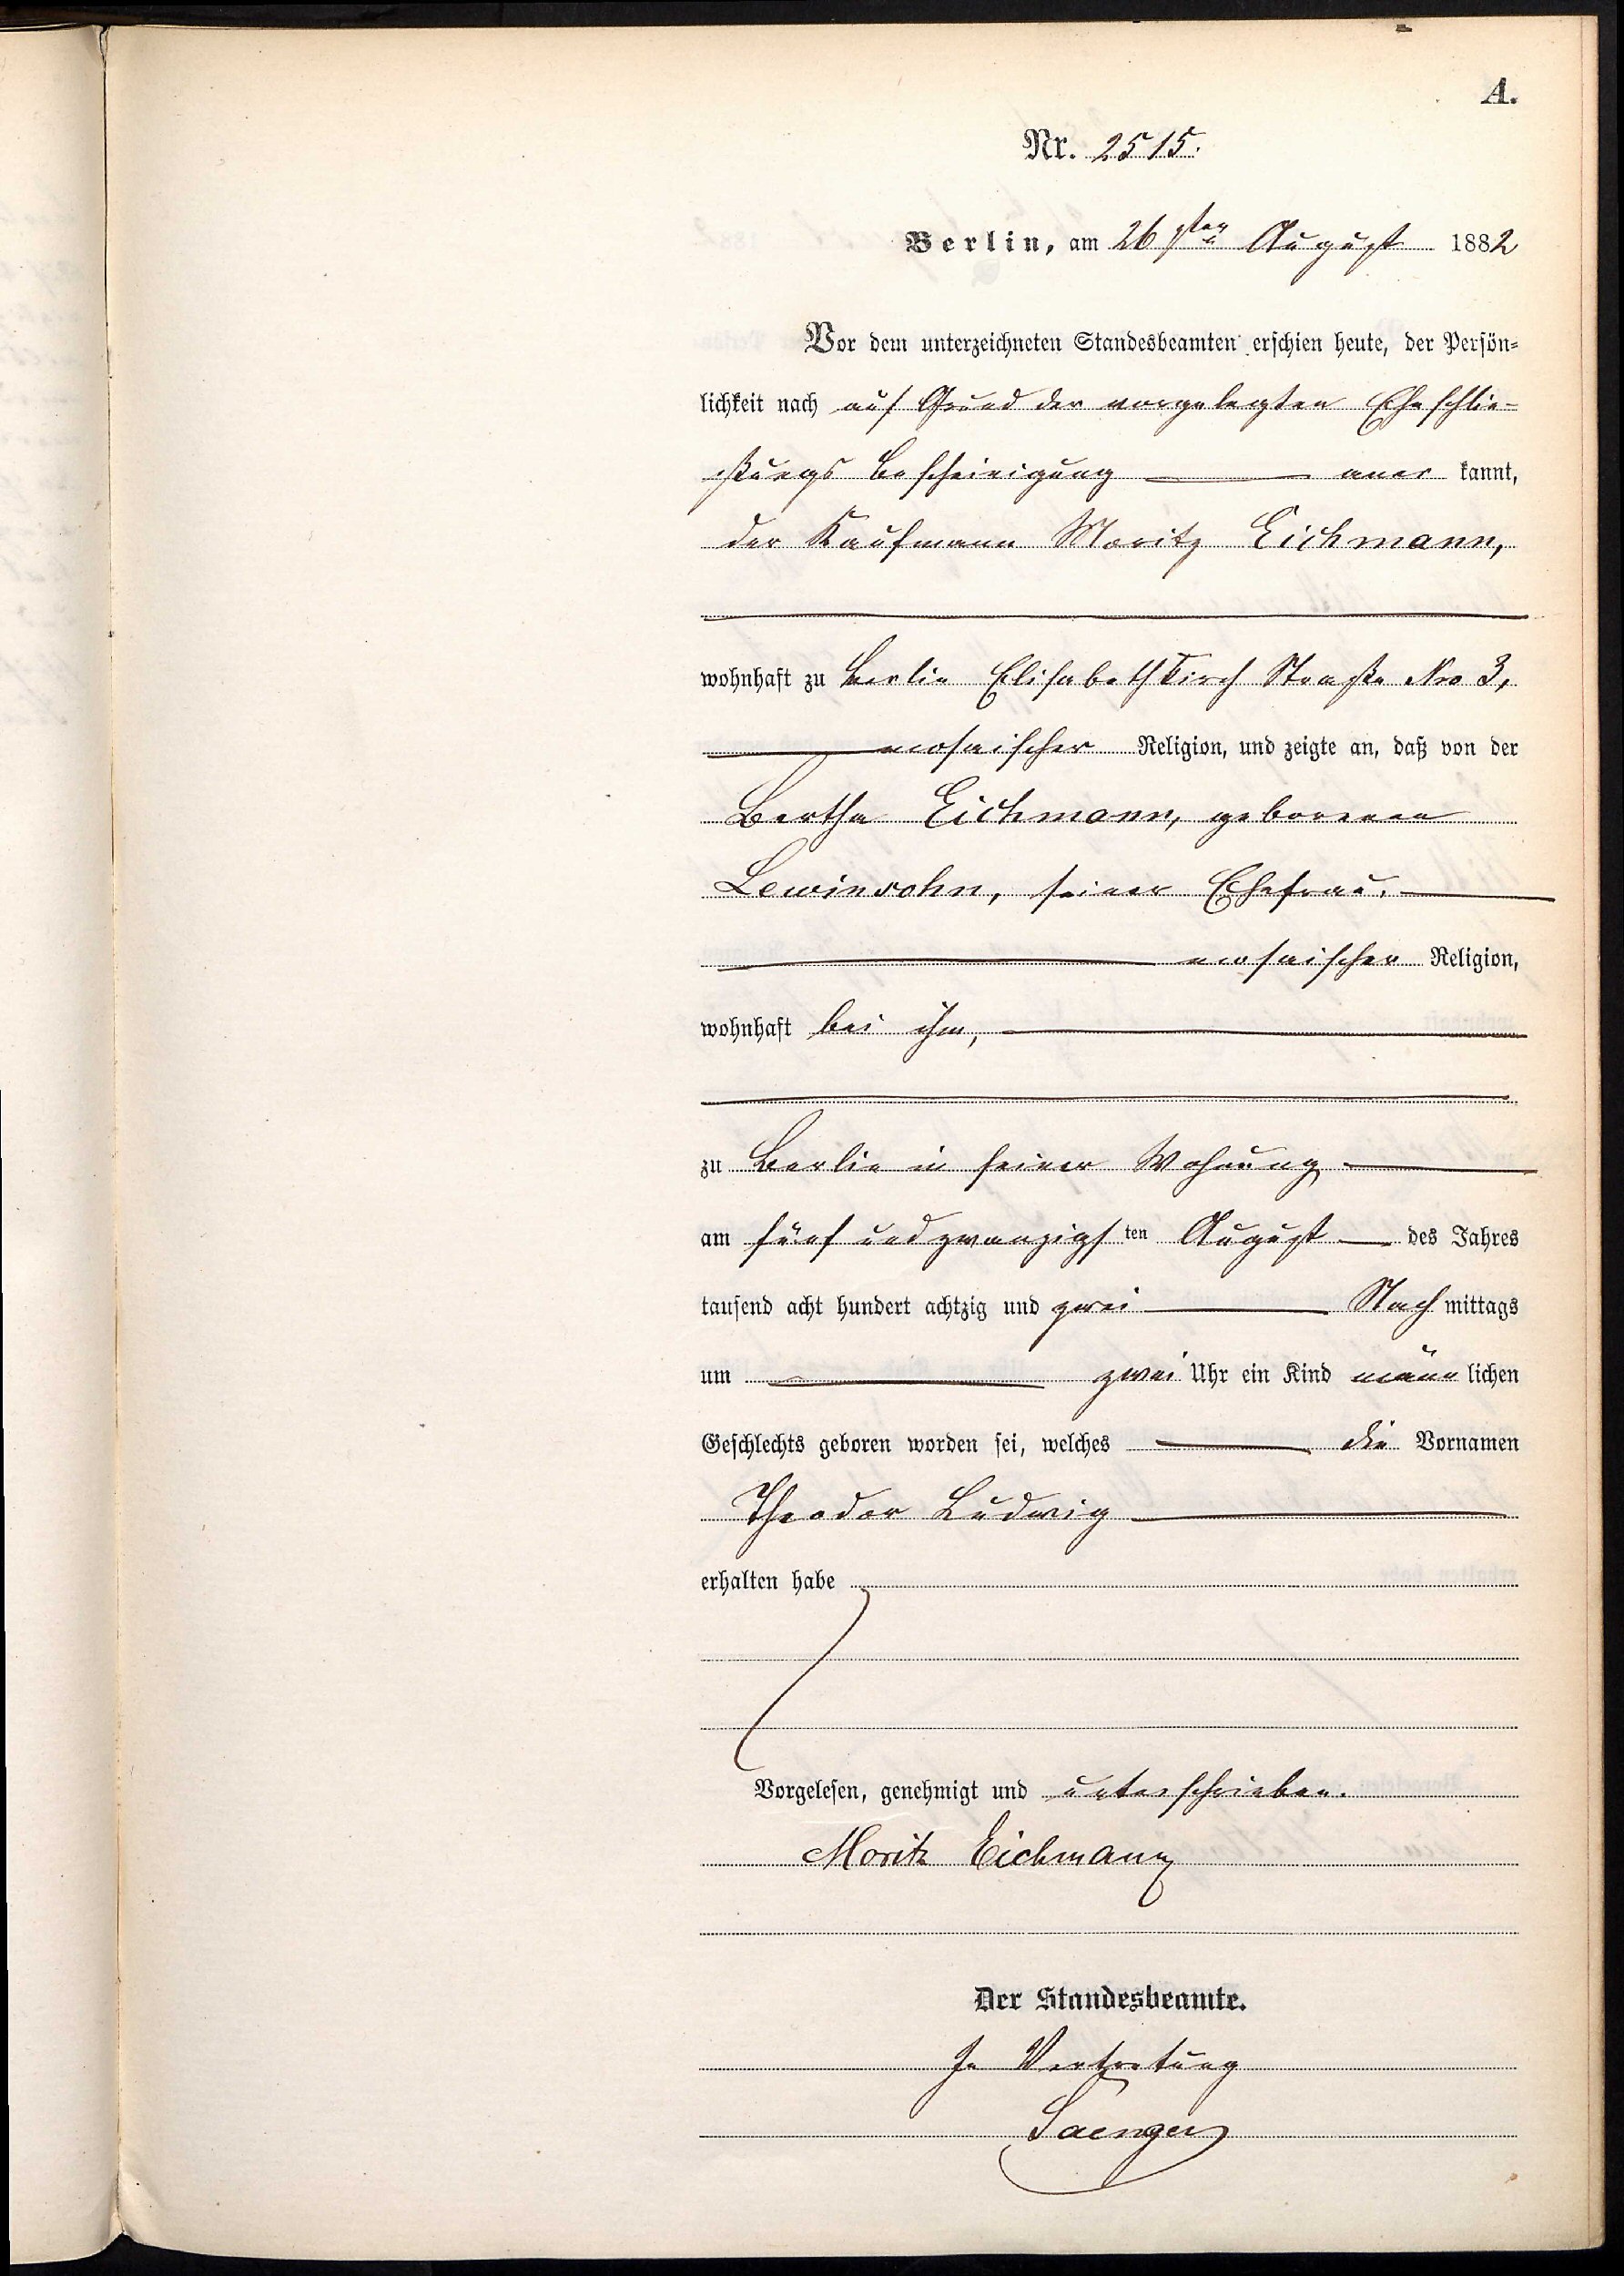 A.
Nr. 2515.
Berlin, am 26sten August 1882
Vor dem unterzeichneten Standesbeamten erschien heute, der Persön-
lichkeit nach auf Grund der vorgelegten Eheschlie-
ßungs Bescheinigung aner kannt,
der Kaufmann Moritz Eichmann,
wohnhaft zu Berlin Elisabethkirch Straße Nro 3,
mosaischer Religion, und zeigte an, daß von der
Bertha Eichmann, geborenen
Lewinsohn, seiner Ehefrau,
mosaischer Religion,
wohnhaft bei ihm,
zu Berlin in seiner Wohnung
am fünf und zwanzigsten August des Jahres
tausend acht hundert achtzig und zwei Nach mittags
um zwei Uhr ein Kind männ lichen
Geschlechts geboren worden sei, welches die Vornamen
Theodor Ludwig
erhalten habe
Vorgelesen, genehmigt und unterschrieben.
Moritz Eichmann
Der Standesbeamte.
In Vertretung
Saenger